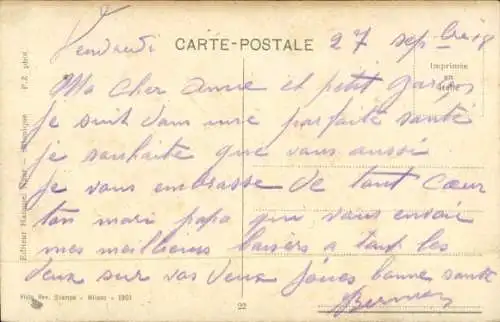 CARTE-POSTALE
Vendredi 27 sepbre 18
Imprimée
en
Italie
Ma cher amie et petit garçon
je suit dans une parfaite santé
je souhaite que vous aussi
je vous embrasse de tout cœur
ton mari papa qui vous envoie
mes meilleurs baisers a tout les
deux sur vos deux joues bonne santé
P.Z. phot.
Editeur Hananel Naar — Salonique
22